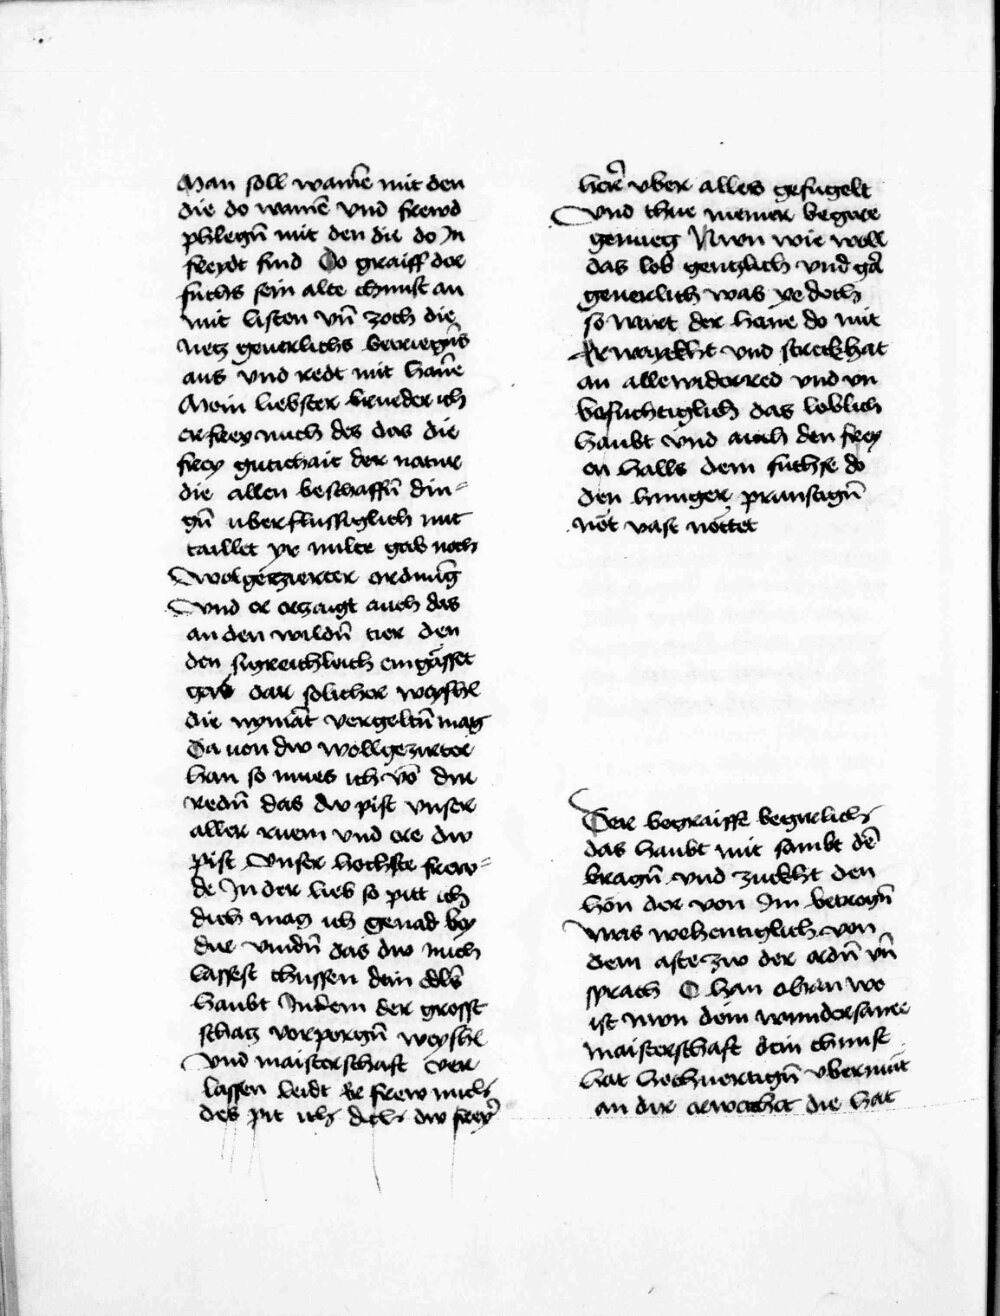 Man soll wainē mit den
die do wainē vnd frewd
phlegn̄ mit den die do In
freydt sind Do graiff der
fuchs sein alte chunst an
mit listen vn̄ zoch die
Netz geuerlichs betriegn̄s
aus vnd redt mit hanē
Mein liebster brueder ich
erfrey mich des das die
frey gutichait der natur
die allen beschaffn̄ din=
gn̄ uberflussiglich mit
taillet yr milte gab noch
wolgezierter ordnūg
Vnd er erzaigt auch das
an den wildn̄ tier den
den sigreichleich eingåsset
gab dar solicher weyshe
die nymāt vergeltn̄ mag
Da uon dw wollgezirter
han so mues ich vō dir
redn̄ das dw pist vnser
aller ruem vnd ere dw
pist vnser hochste frew=
de In der lieb so pitt ich
dich mag ich genad bey
dir vindn̄ das dw mich
lassest chussen dein edls
haubt Indem der grosst
schatz verporgn̄ weyshe
vnd maisterschafft ver
lassen leidt Er frew mich
des pit ich dich dw frey
herr̄ vber alles gefugelt
Vnd thue meiner begire
genueg Nwn wie woll
das lob gentzlich vnd gar̄
geuerlich was ye doch
so wart der hane do mit
Erwaykht vnd streckhat
an alle widerred vnd vn
besuchtiglich das loblich
haubt vnd auch den frey
en halls dem fuchse do
den hunger pranstign̄
not vast nottet
Der begraiffe begirlich
das haubt mit sambt dē
kragn̄ vnd zuckht den
hon der von Im betrogn̄
was wehentiglich von
dem aste zw der erdn̄ vn̄
sprach O han obran wo
ist nwn dein wundersame
maisterschafft dein chunst
hat hochuertign̄ vbermūt
an dir erwecht die hat